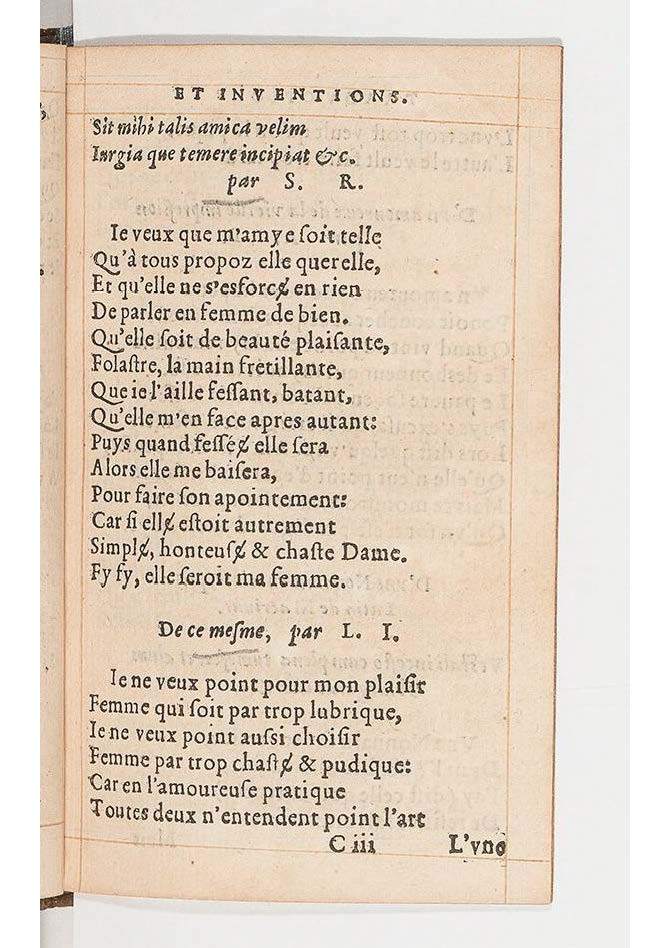 ET INVENTIONS.
Sit mihi talis amica velim
Iurgia que temere incipiat &c.
par S. R.
Ie veux que m'amye soit telle
Qu'à tous propoz elle querelle,
Et qu'elle ne s'esforcɇ en rien
De parler en femme de bien.
Qu'elle soit de beauté plaisante,
Folastre, la main fretillante,
Que ie l'aille fessant, batant,
Qu'elle m'en face apres autant:
Puys quand fesséɇ elle sera
Alors elle me baisera,
Pour faire son apointement:
Car si ellɇ estoit autrement
Simplɇ, honteusɇ & chaste Dame.
Fy fy, elle seroit ma femme.
De ce mesme, par L. I.
Ie ne veux point pour mon plaisir
Femme qui soit par trop lubrique,
Ie ne veux point aussi choisir
Femme par trop chastɇ & pudique:
Car en l'amoureuse pratique
Toutes deux n'entendent point l'art
C iii L'vne